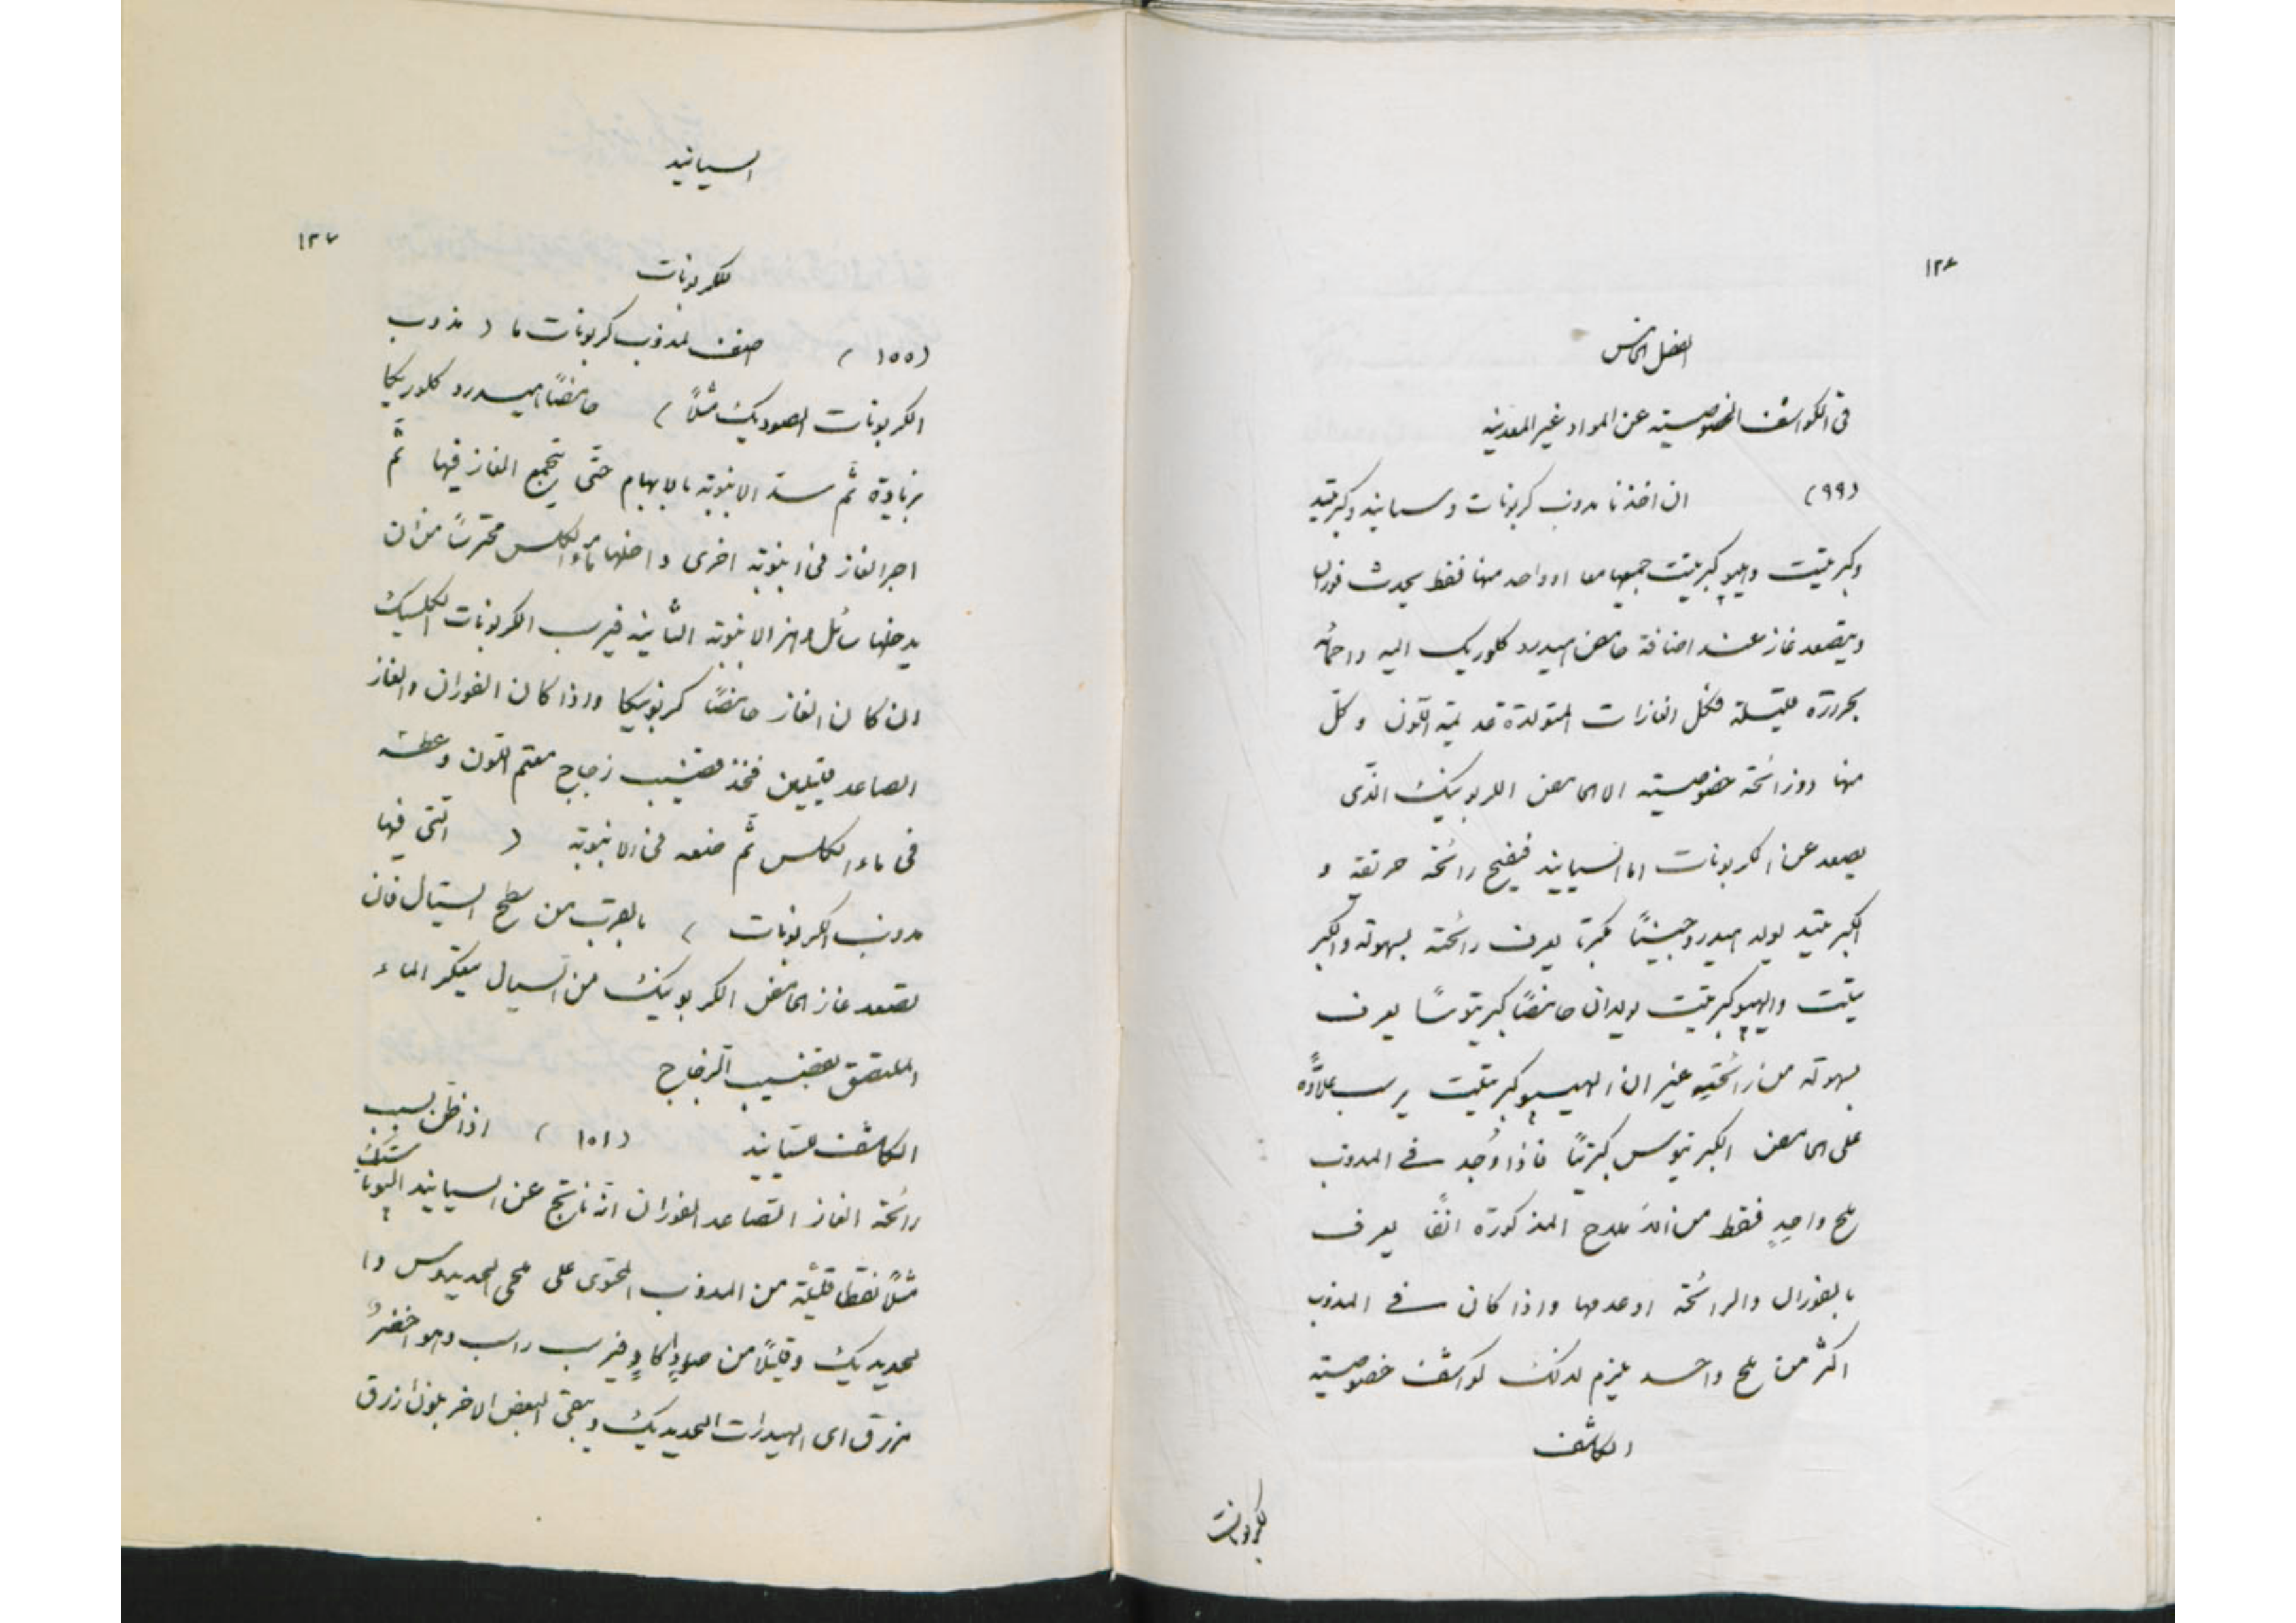 ١٢٦
الفصل الخامس
فى الكواشف الخصوصية عن المواد غير المعدنيه
(٩٩) ان اخذنا مذوب كربونات وسيانيد وكبرتيد
وكبريتيت وهيپوكبريتيت جميعها معا او واحد منها فقط يحدث فوران
ويتصعد غاز عند اضافة حامض هيدرو كلوريك اليه واحمائه
بحرارة قليلة فكل الغازات المتولدة عديمة اللون وكلّ
منها ذو رائحة خصوصية الا الحامض الكربونيك الذى
يصعد عن الكربونات اما السيانيد فيفيح رائحة حريفة و
الكبريتيد يولد هيدروجينًا مكبرتا يعرف رائحته بسهولة والكبر
يتيت والهيپوكبريتيت يولدان حامضًا كبريتوسًا يعرف
بسهولة من رائحتيه غير ان الهيپوكبريتيت يرسب علاوةً
على الحامض الكبريتوس كبريتًا فاذا وُجد فى المذوب
ملح واحدٍ فقط من الاملاح المذكورة انفًا يعرف
بالفوران والرائحة او عدمها واذا كان فى المذوب
اكثر من ملح واحد يلزم لذلك كواشف خصوصية
الكاشف
لكربونات
السيانيد
١٢٧
للكربونات
(١٥٥) اضف لمذوب كربونات ما (مذوب
الكربونات الصوديك مثلاً) حامضًا هيدرو كلوريكا
بزيادة ثم سدّ الانبوبة بالابهام حتّى يتجمع الغاز فيها ثمّ
اجر الغاز فى انبوبة اخرى داخلها ماء الكلس محترسًا من ان
يدخلها سائل وهز الانبوبة الثانية فيرسب الكربونات الكلسيك
ان كان الغاز حامضًا كربونيكا واذا كان الفوران والغاز
الصاعد قليلين فخذ قضيب زجاج معتم اللون وغطسه
فى ماء الكلس ثمّ ضعه فى الانبوبة (التى فيها
مذوب الكربونات) بالقرب من سطح السيّال فان
تصعد غاز الحامض الكربونيك من السيال يتعكر الماء
الملتصق بقضيب الزجاج
الكاشف للسيانيد (١٥١) اذا ظن بسبب
رائحة الغاز المتصاعد الفوران انه ناتج عن السيانيد الپوتاسيك
مثلًا نقطا قليلة من المذوب المحتوى على ملحى الحديدوس وا
لحديديك وقليلًا من صودا كاوٍ فيرسب راسب وهو اخضرُ
مزرق اى الهيدرات الحديديك ويبقى البعض الاخر بلون ازرق